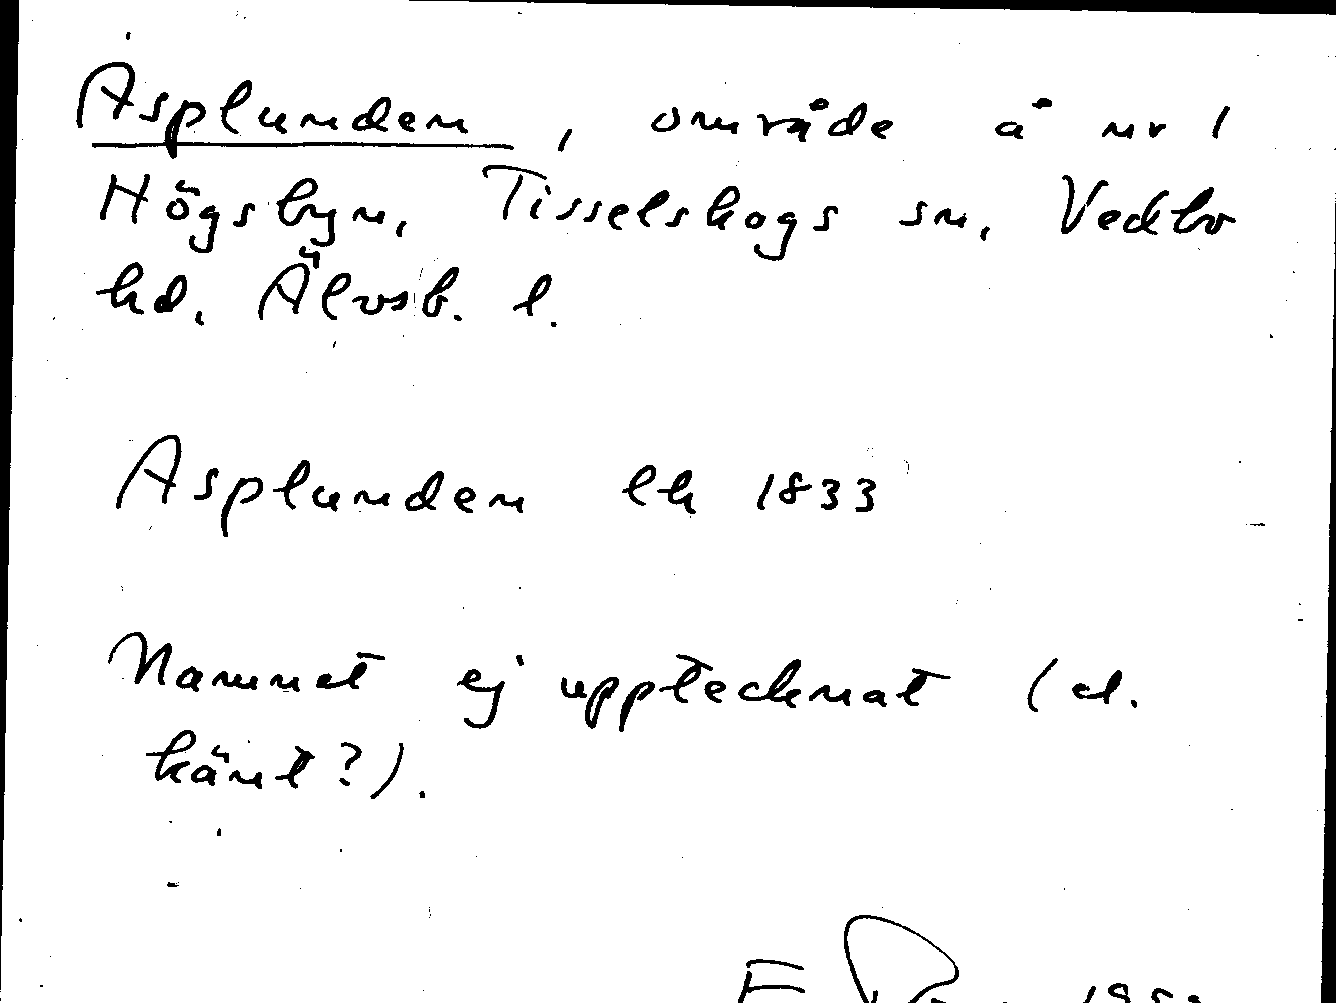 Asplunden, område å nr 1
Högsbyn, Tisselskogs sn, Vedbo
hd. Älvsb. l.
Asplunden lh 1833
Namnet ej upptecknat (el.
känt?).